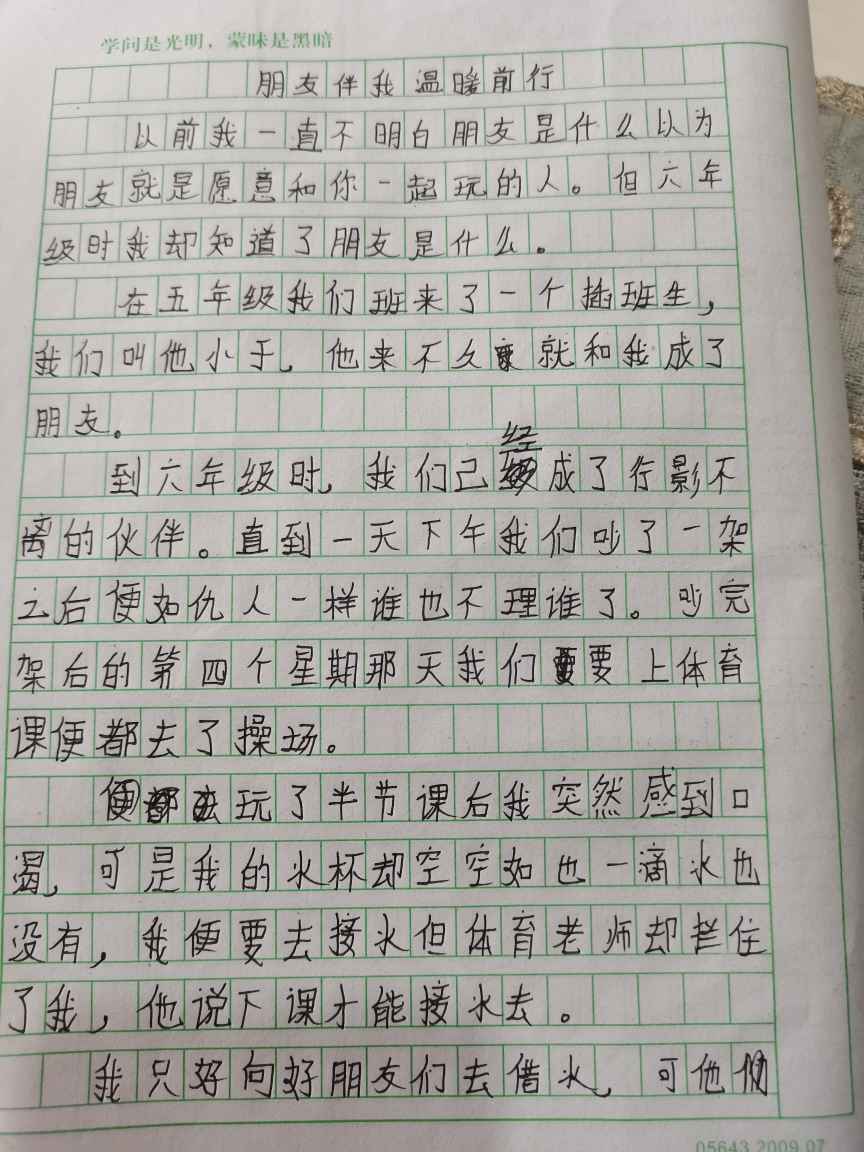 学问是光明，蒙昧是黑暗
朋友伴我温暖前行
以前我一直不明白朋友是什么以为
朋友就是愿意和你一起玩的人。但六年
级时我却知道了朋友是什么。
在五年级我们班来了一个插班生，
我们叫他小于，他来不久就和我成了
朋友。
到六年级时，我们已经成了行影不
离的伙伴。直到一天下午我们吵了一架
之后便如仇人一样谁也不理谁了。吵完
架后的第四个星期那天我们要上体育
课便都去了操场。
玩了半节课后我突然感到口
渴，可是我的水杯却空空如也一滴水也
没有，我便要去接水但体育老师却拦住
了我，他说下课才能接水去。
我只好向好朋友们去借水，可他们
05643.2009.07